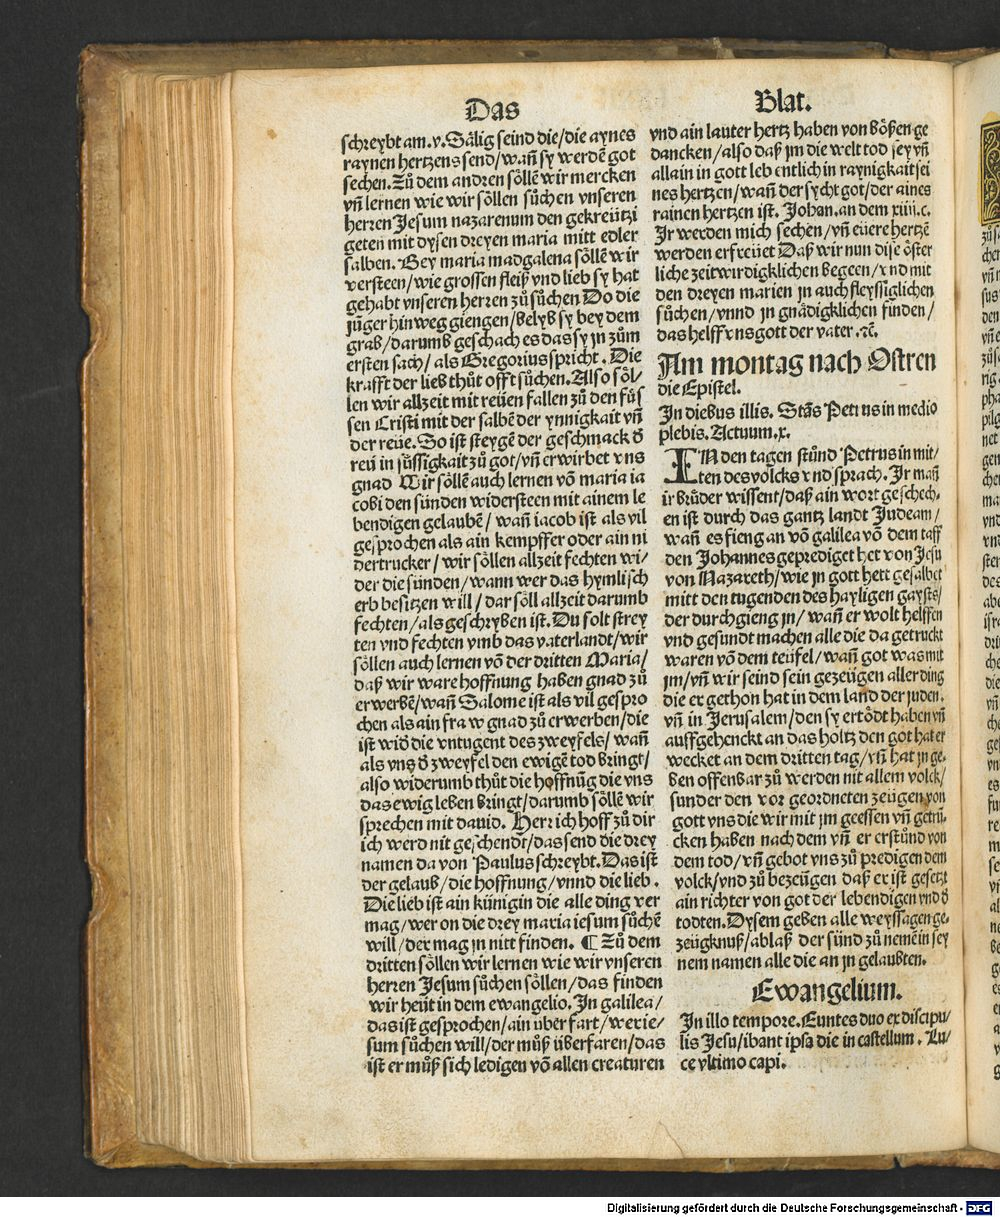 Das
schreybt am .v. Sälig seind die/die aynes
raynen hertzens send/wañ sy werdē got
sechen. Zů dem andren söllē wir mercken
vñ lernen wie wir söllen sůchen vnseren
herren Jesum nazarenum den gekreützi
geten mit dysen dreyen maria mitt edler
salben. Bey maria madgalena söllē wir
versteen/wie grossen fleiß vnd lieb sy hat
gehabt vnseren herren zů sůchen Do die
jüger hinweg giengen/belyb sy bey dem
grab/darumb geschach es das sy jn zům
ersten sach/als Gregorius spricht. Die
krafft der lieb thůt offt sůchen. Also söl/
len wir allzeit mit reüen fallen zů den füs
sen Cristi mit der salbē der ynnigkait vñ
der reüe. So ist steygē der geschmack d̄
reü in süssigkait zů got/vñ erwirbet vns
gnad Wir söllē auch lernen vō maria ia
cobi den sünden widersteen mit ainem le
bendigen gelaubē/wañ iacob ist als vil
gesprochen als ain kempffer oder ain ni
dertrucker/wir söllen allzeit fechten wi/
der die sünden/wann wer das hymlisch
erb besitzen will/dar söll allzeit darumb
fechten/als geschryben ist. Du solt strey
ten vnd fechten vmb das vaterlandt/wir
söllen auch lernen vō der dritten Maria/
daß wir ware hoffnung haben gnad zů
erwerbē/wañ Salome ist als vil gespro
chen als ain fraw gnad zů erwerben/die
ist wid̄ die vntugent des zweyfels/wañ
als vns d̄ zweyfel den ewigē tod bringt/
also widerumb thůt die hoffnūg die vns
das ewig leben bringt/darumb söllē wir
sprechen mit dauid. Herr ich hoff zů dir
ich werd nit geschendt/das send die drey
namen da von Paulus schreybt. Das ist
der gelaub/die hoffnung/vnnd die lieb.
Die lieb ist ain künigin die alle ding ver
mag/wer on die drey maria iesum sůchē
will/der mag jn nitt finden. ¶ Zů dem
dritten söllen wir lernen wie wir vnseren
herren Jesum sůchen söllen/das finden
wir heüt in dem ewangelio. In galilea/
das ist gesprochen/ain überfart/wer ie/
sum sůchen will/der můß überfaren/das
ist er můß sich ledigen vō allen creaturen
Blat.
vnd ain lauter hertz haben von bößen ge
dancken/also daß jm die welt tod sey vñ
allain in gott leb entlich in raynigkait sei
nes hertzen/wañ der sycht got/der aines
rainen hertzen ist. Johan. an dem xiiii. c.
Ir werden mich sechen/vñ eüere hertzē
werden erfreüet Daß wir nun dise öster
liche zeit wirdigklichen begeen/vnd mit
den dreyen marien jn auch fleyssigklichen
sůchen/vnnd jn gnädigklichen finden/
das helff vns gott der vater. ꝛc̄.
Am montag nach Ostren
die Epistel.
In diebus illis. Stās Petrus in medio
plebis. Actuum. x.
IN den tagen stůnd Petrus in mit/
ten des volcks vnd sprach. Ir mañ
ir brůder wissent/daß ain wort geschech/
en ist durch das gantz landt Judeam/
wañ es fieng an vō galilea vō dem tauff
den Johannes geprediget het von Jesu
von Nazareth/wie jn gott hett gesalbet
mitt den tugenden des hayligen gaysts/
der durchgieng jn/wañ er wolt helffen
vnd gesundt machen alle die da getruckt
waren vō dem teüfel/wañ got was mit
jm/vñ wir seind sein gezeügen aller ding
die er gethon hat in dem land der juden.
vñ in Jerusalem/den sy ertödt haben vñ
auffgehenckt an das holtz den got hat er
wecket an dem dritten tag/vñ hat jn ge/
ben offenbar zů werden nit allem volck/
sunder den vor geordneten zeügen von
gott vns die wir mit jm geessen vñ getrū/
cken haben nach dem vñ er erstůnd von
dem tod/vñ gebot vns zů predigen dem
volck/vnd zů bezeügen daß er ist gesetzt
ain richter von got der lebendigen vnd d̄
todten. Dysem geben alle weyssagen ge/
zeügknuß/ablaß der sünd zů nemē in sey
nem namen alle die an jn gelaubten.
Ewangelium.
In illo tempore. Euntes duo ex discipu/
lis Jesu/ibant ipsa die in castellum. Lu/
ce vltimo capi.
Digitalisierung gefördert durch die Deutsche Forschungsgemeinschaft - DFG